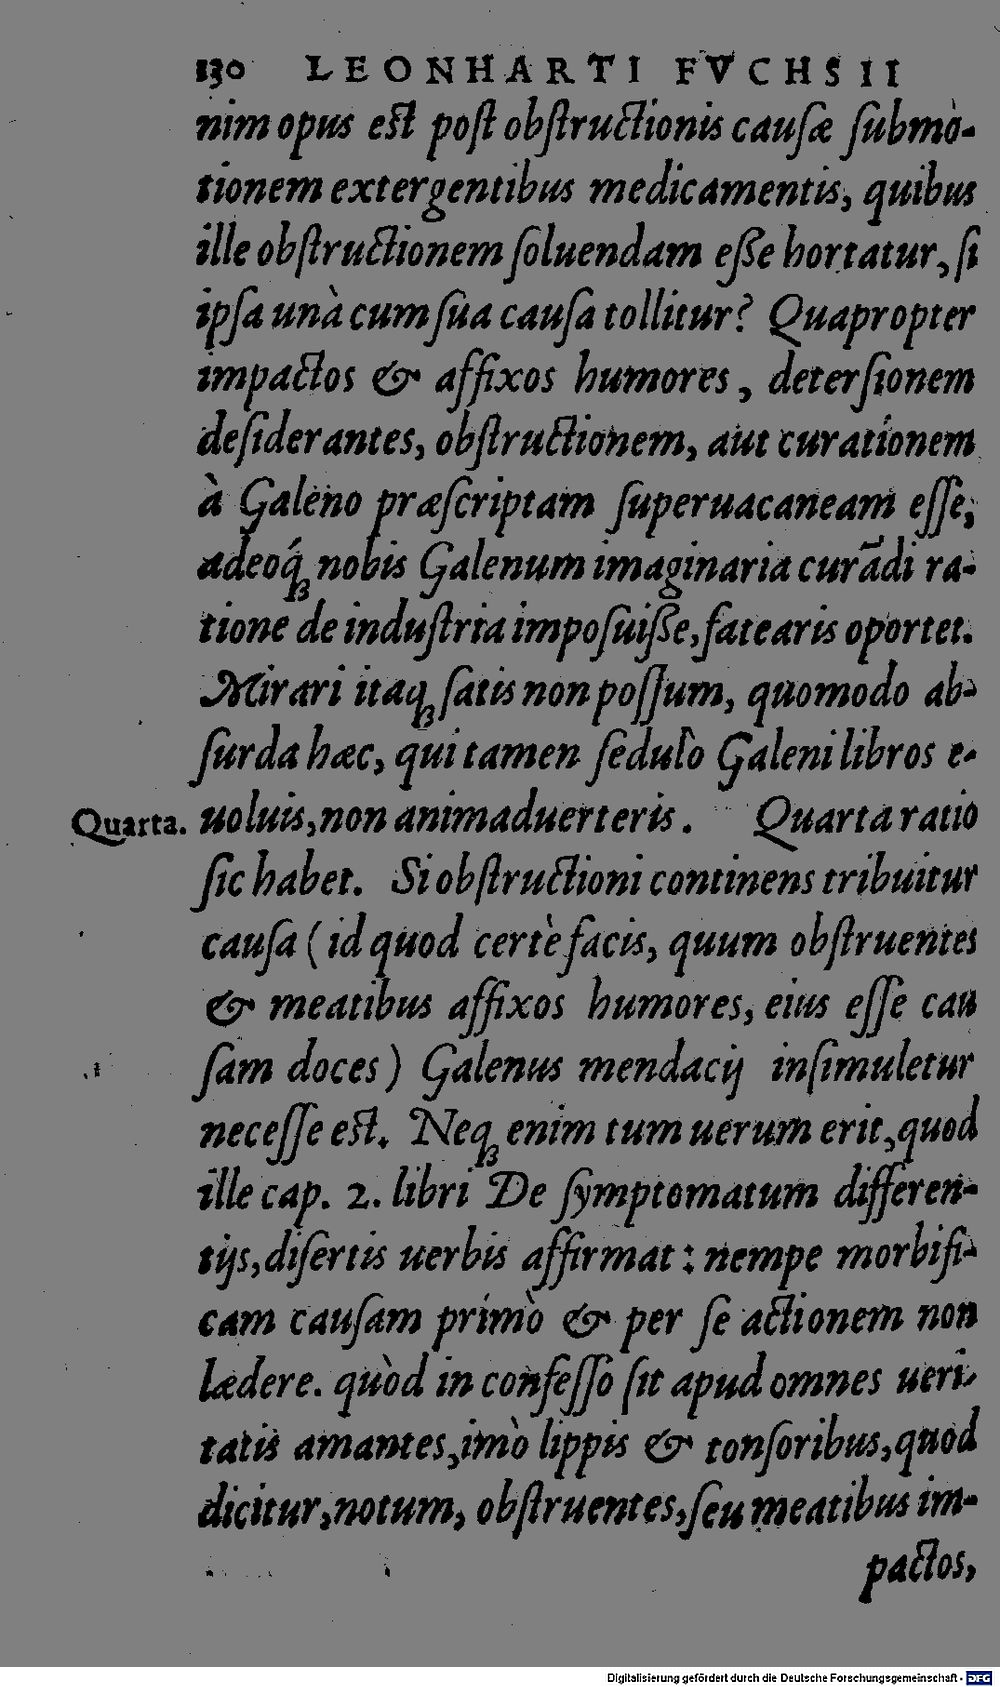 130 LEONHARTI FVCHSII
nim opus est post obſtructionis cauſæ ſubmo-
tionem extergentibus medicamentis, quibus
ille obſtructionem ſoluendam eſse hortatur, ſi
ipſa unà cum ſua cauſa tollitur? Quapropter
impactos & affixos humores, deterſionem
deſiderantes, obſtructionem, aut curationem
à Galeno præſcriptam ſuperuacaneam eſſe,
adeoq́ꝫ nobis Galenum imaginaria curãdi ra-
tione de induſtria impoſuiſse, fatearis oportet.
Mirari itaqꝫ ſatis non poſſum, quomodo ab-
ſurda hæc, qui tamen ſedulo Galeni libros e-
Quarta. uoluis, non animaduerteris. Quarta ratio
ſic habet. Si obſtructioni continens tribuitur
cauſa (id quod certè facis, quum obſtruentes
& meatibus affixos humores, eius eſſe cau
ſam doces) Galenus mendacij inſimuletur
neceſſe est. Neqꝫ enim tum uerum erit, quod
ille cap. 2. libri De ſymptomatum differen-
tijs, diſertis uerbis affirmat: nempe morbifi-
cam cauſam primò & per ſe actionem non
lædere. quòd in confeſſo ſit apud omnes ueri-
tatis amantes, imò lippis & tonſoribus, quod
dicitur, notum, obſtruentes, ſeu meatibus im-
pactos,
Digitalisierung gefördert durch die Deutsche Forschungsgemeinschaft - DFG